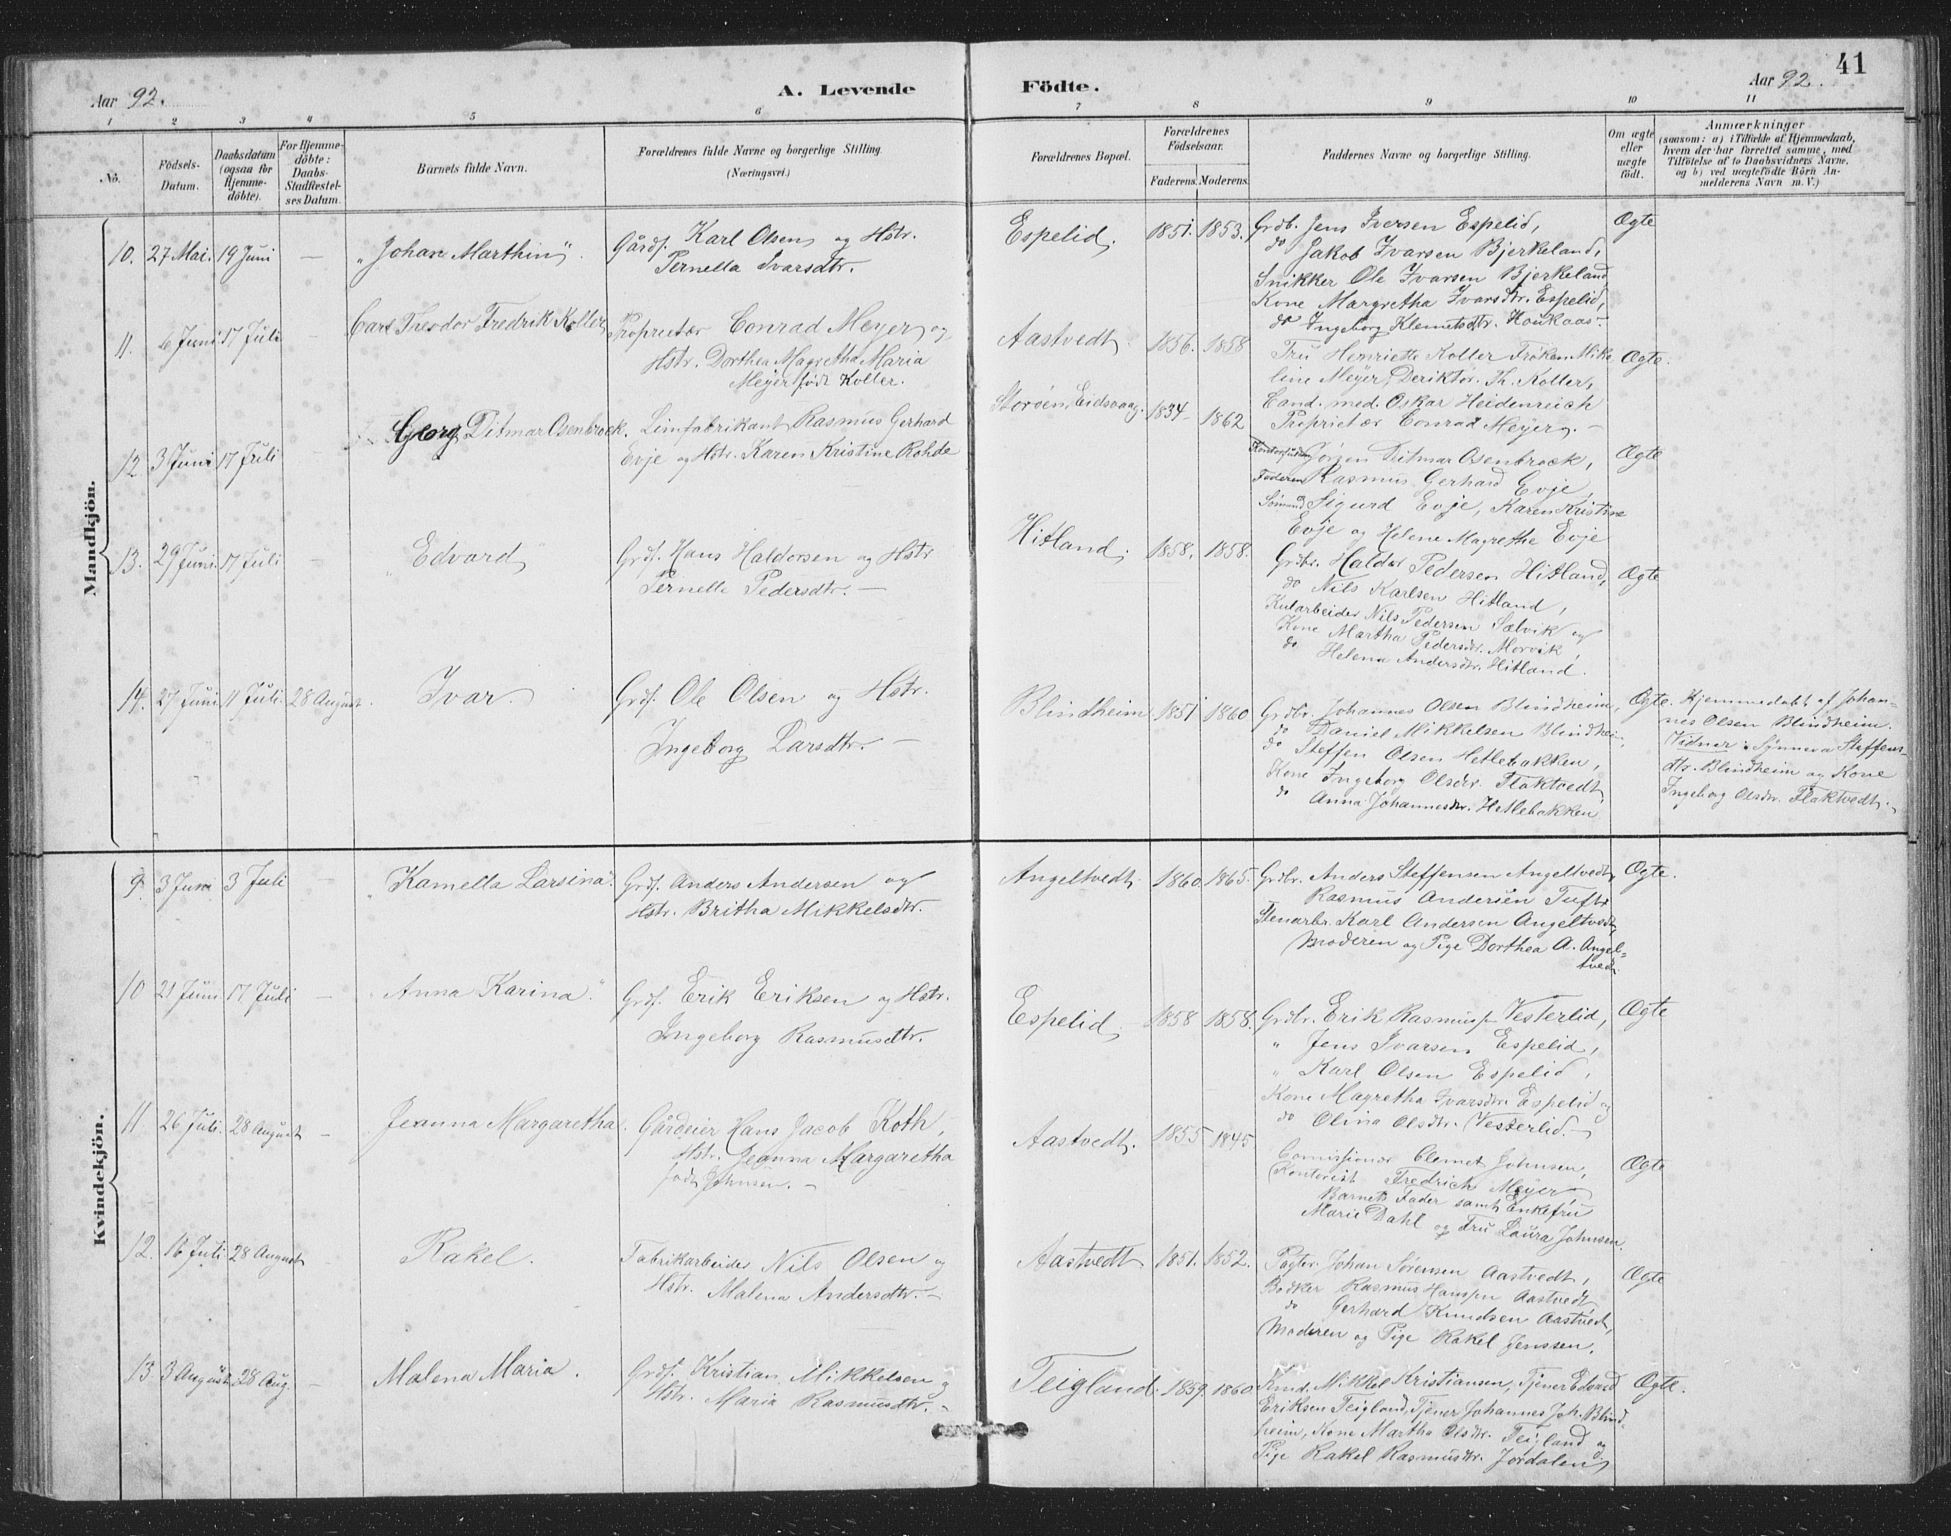 41
Aar 92.
A. Levende
Födte.
Aar 92.
1 2 3 4 5 6
7 8 9 10 11
No.
Födsels-
Datum.
Daabsdatum
(ogsaa for
Hjemme-
döbte).
For Hjemme-
döbte:
Daabs-
Stadfæstel-
ses Datum.
Barnets fulde Navn.
Forældrenes fulde Navne og borgerlige Stilling
(Næringsvei.)
Forældrenes Bopæl.
Forældrenes
Födselsaar.
Faderens. Moderens.
Faddernes Navne og borgerlige Stilling.
Om ægte
eller
uægte
födt.
Anmærkninger
(saasom: a) i Tilfælde af Hjemmedaab,
hvem der har forrettet samme, med
Tilföielse af to Daabsvidners Navne,
og b) ved uægtefödte Börn An-
melderens Navn m. V.)
Mandkjön.
10. 27 Mai. 19 Juni — "Johan Marthin". Gårdf. Karl Olsen og Hstr.
Pernella Ivarsdtr.
Espelid. 1851. 1853. Grdb. Jens Iversen Espelid, Ægte
do Jakob Ivarsen Bjerkeland,
Snikker Ole Ivarsen Bjerkeland
Kone Margretha Ivarsdtr. Espelid,
do Ingeborg Klemetsdtr. Houkaas.
11. 6 Juni 17 Juli — Carl Theodor Fredrik Koller Proprietær Conrad Meyer og
Hstr. Dorthea Magretha Maria
Meyer født Koller.
Aastvedt. 1856. 1858 Fru Henriette Koller Frøken Mika Ægte.
line Meyer, Deriktør. Th. Koller,
Cand. med. Oskar Heidenreich
Proprietær Conrad Meyer. —
12 3 Juni 17 Juli — Georg Ditmar Osenbrock. Leimfabrikant Rasmus Gerhard
Evje og Hstr. Karen Kristine Rohde
Storøen, Eidsvaag. 1834 1862
Jørgen Ditmar Osenbrock, Ægte
Faderen Rasmus Gerhard Evje,
Sømand Sigurd Evje, Karen Kristine
Evje og Helene Magrethe Evje
13. 29 Juni 17 Juli — Edvard Grdf. Hans Haldorsen og Hstr
Pernelle Pedersdtr. —
Hitland. 1858. 1858. Grdbr. Haldor Pedersen Hitland, Ægte
do Nils Karlsen Hitland,
Kularbeider Nils Pedersen Sælvik og
Kone Martha Pedersdtr. Morvik,
do Helena Andersdtr. Hitland.
14. 27 Juni 11 Juli. 28 August. Ivar. Grdf. Ole Olsen og Hstr.
Ingeborg Larsdtr. —
Blindheim 1851 1860 Grdbr. Johannes Olsen Blindheim, Ægte. Hjemmedøbt af Johan-
do Daniel Mikkelsen Blindheim, nes Olsen Blindheim.
do Steffen Olsen Hetlebakken, Vidner: Synneva Steffens-
Kone Ingeborg Olsdtr. Flaktvedt, dtr. Blindheim og Kone
do Anna Johannesdtr. Hetlebakken Ingeborg Olsdtr. Flaktvedt.
Kvindekjön.
9. 3 Juni 3 Juli Kamella Larsina". Grdf. Anders Andersen og
Hstr. Britha Mikkelsdtr.
Angeltvedt. 1860. 1865. Grdbr. Anders Steffensen Angeltvedt, Ægte.
Rasmus Andersen Tufte
Stenarbr. Karl Andersen Angeltvedt,
Moderen og Pige Dorthea A. Angel-
tvedt.
10 21 Juni 17 Juli — Anna Karina". Grdf. Erik Eriksen og Hstr.
Ingeborg Rasmusdtr.
Espelid 1858 1858. Grdbr. Erik Rasmuss. Vesterlid, Ægte
" Jens Ivarsen Espelid,
" Karl Olsen Espelid,
Kone Magretha Ivarsdtr Espelid og
do Olina Olsdtr. Vesterlid. —
11 26 Juli. 28 August — Jeanna Margaretha. Gårdeier Hans Jacob Koth,
Hstr. Jeanna Margaretha
født Johnsen. —
Aastvedt. 1855 1845 Comissionær Clemet Johnsen, Ægte
Kontorist Fredrich Meyer
Barnets Fader samt Enkefru
Marie Dahl og Fru Laura Johnsen.
12. 16 Juli. 28 August Rakel. Fabrikarbeider Nils Olsen og
Hstr. Malena Andersdtr. —
Aastvedt 1851. 1852. Pagter Johan Sørensen Aastvedt, Ægte
Bødker Rasmus Hanssen Aastvedt
do Gerhard Knudsen Aastvedt,
Moderen og Pige Rakel Jenssen.
13 3 August. 28 Aug. — Malena Maria. Grdf. Kristian Mikkelsen og
Hstr. Maria Rasmusdtr. —
Teigland. 1859. 1860. Mikkel Kristiansen, Tjener Edvard Ægte.
Eriksen Teigland, Tjener Johannes Joh. Blind-
heim, Kone Martha Olsdtr. Teigland og
Pige Rakel Rasmusdtr. Jordalen